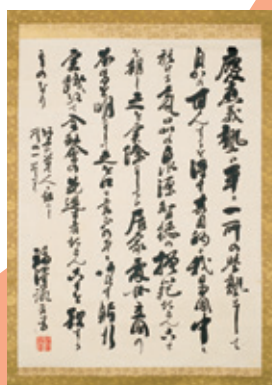 慶應義塾ハ単ニ一所の学塾として
自から甘んするを得す其目的ハ我日本国中ニ
於ける気品の泉源智徳の模範たらんことを
期し之を実際ニしてハ居家処世立国の
本旨を明ニして之を口ニ言ふのみニあらす躬行
実践以て全社会の先導者たらんことを期する
ものなり
福澤諭吉書